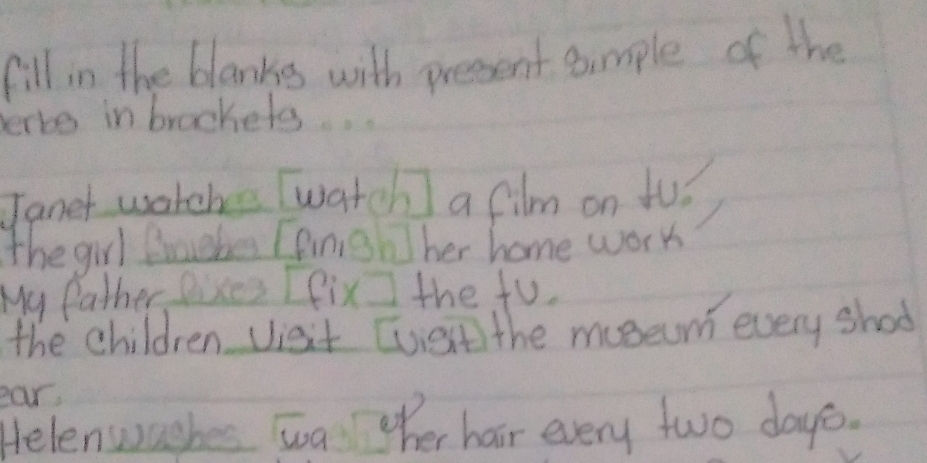 fill in the blanks with present simple of the
erbs in brackets...
Janet watches [watch] a film on tv.
the girl finishes [finish] her home work
My father fixes [fix] the tv.
the children visit [visit] the museum every
ear.
Helen washes [wa her hair every two days.